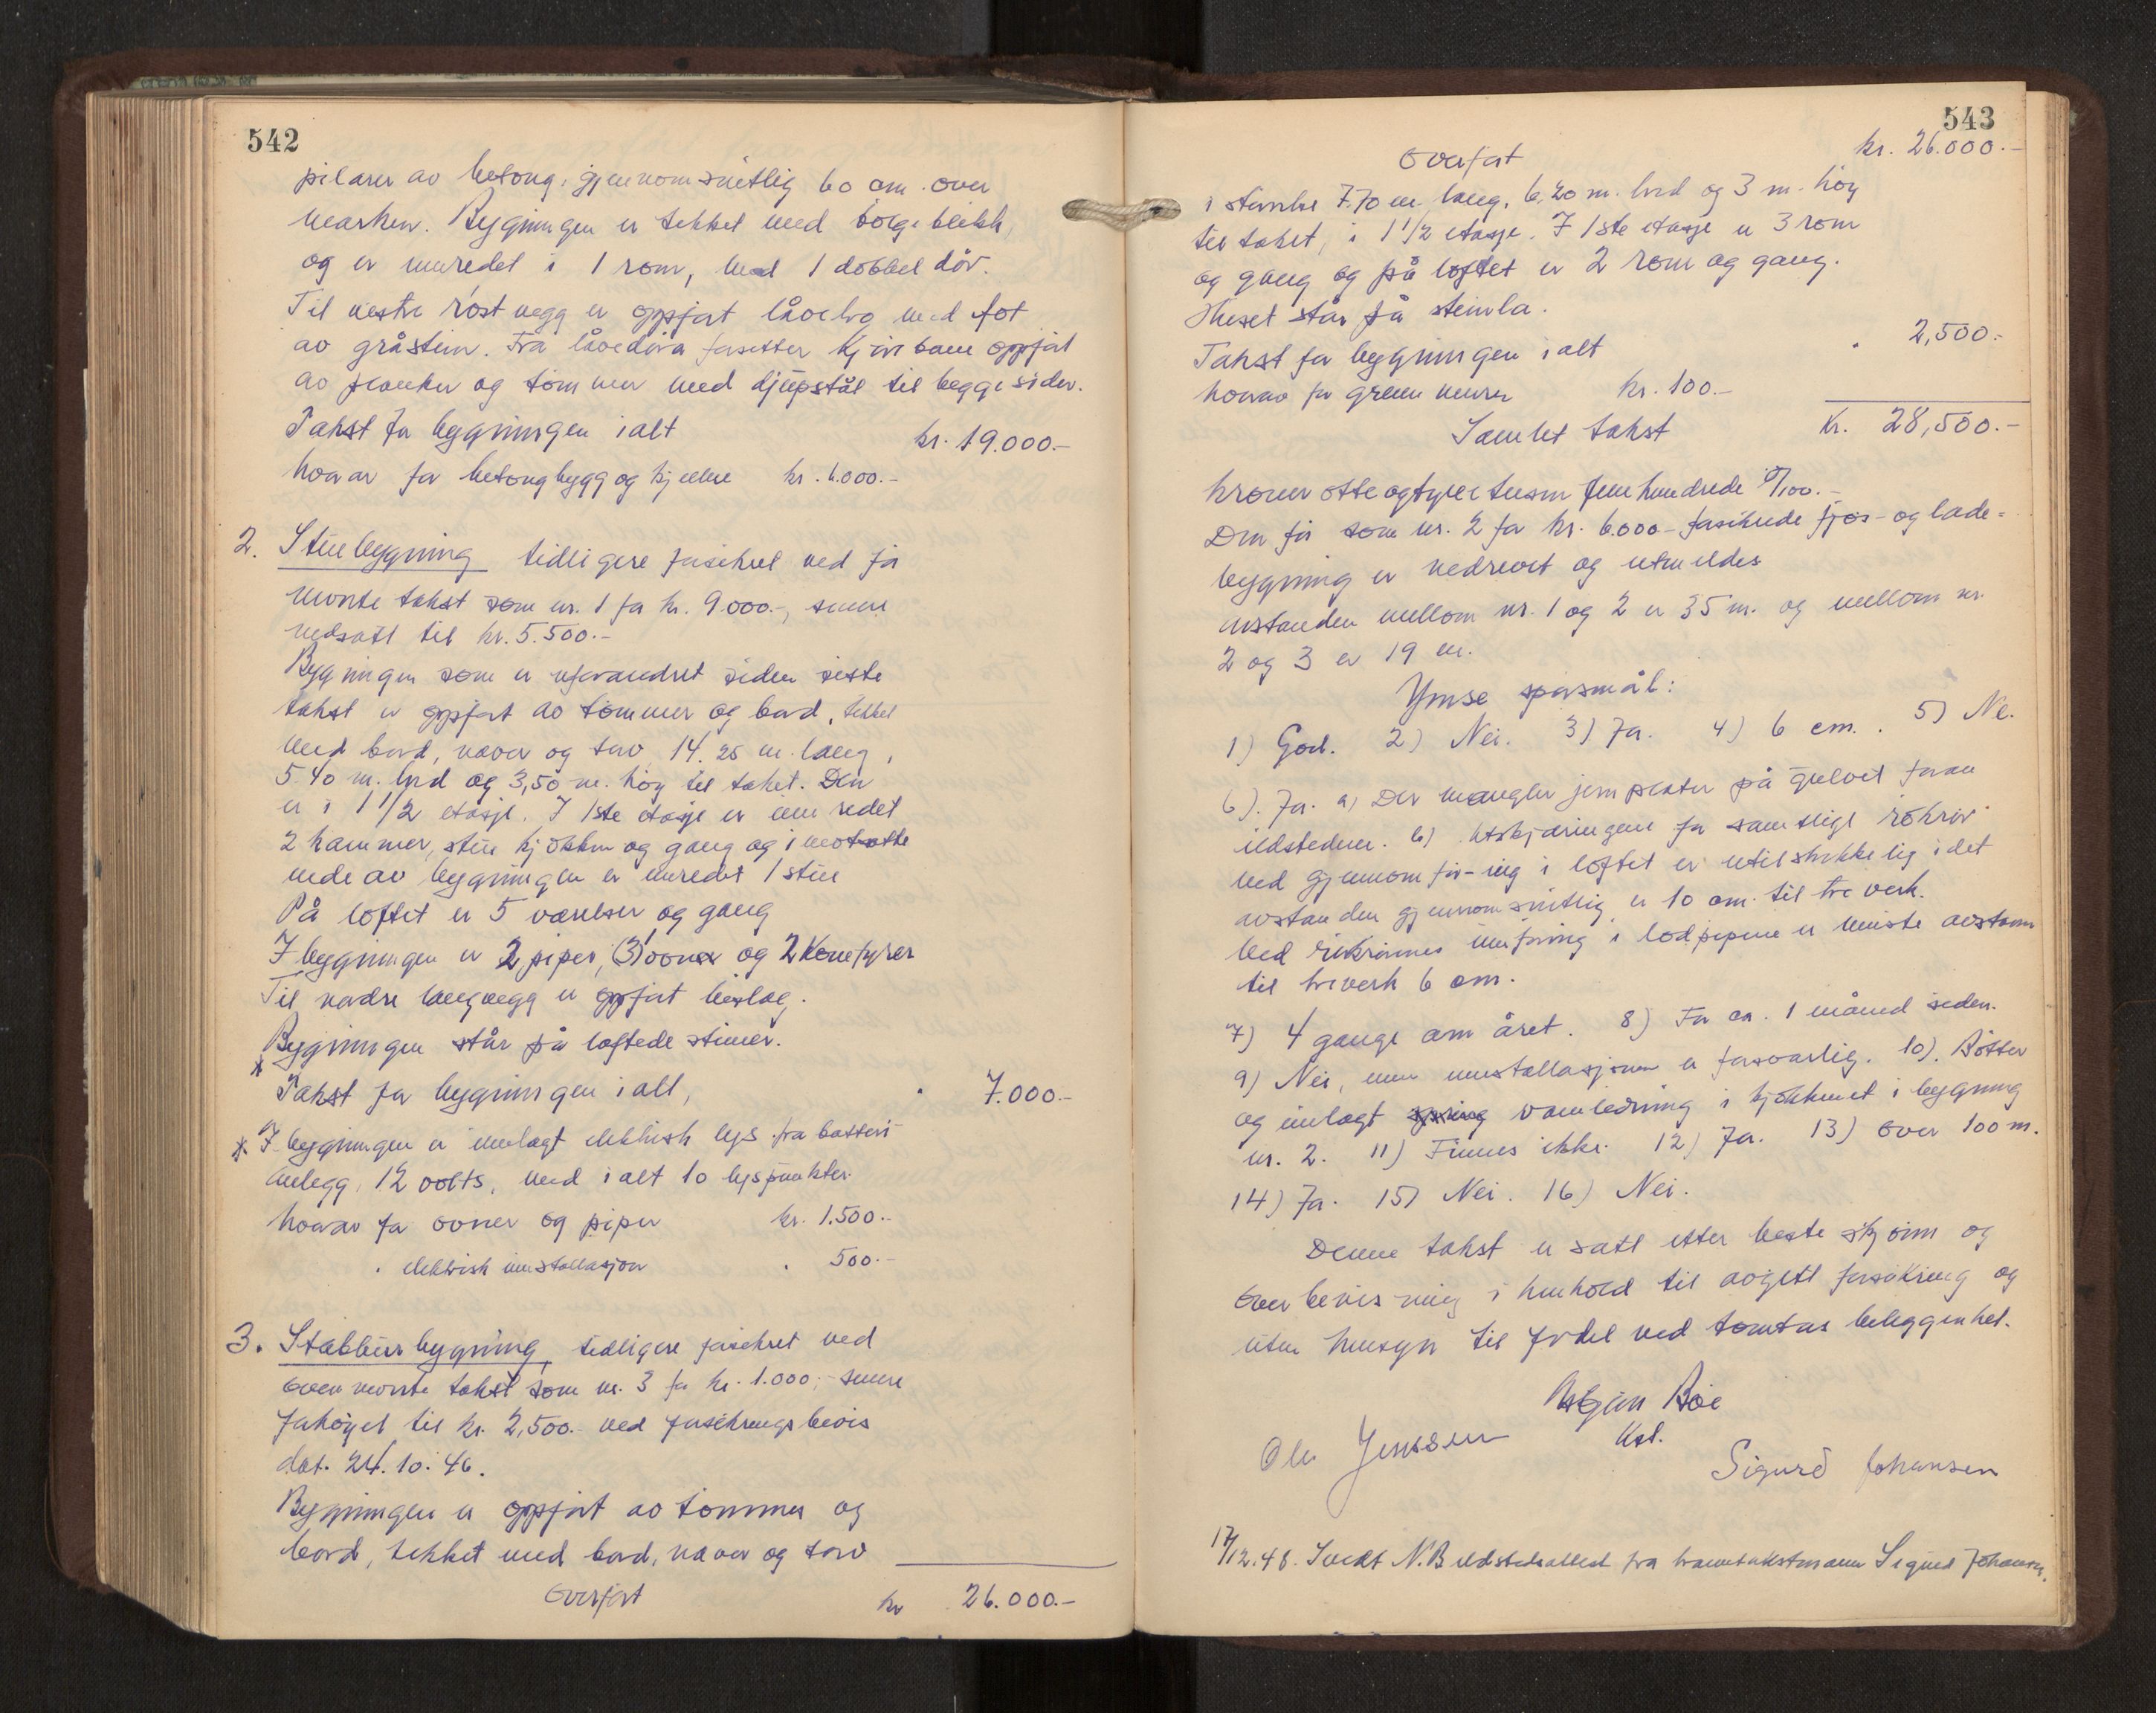 542
pilarer av betong, gjennomsnitlig 60 cm. over
marken. Bygningen er tekket med bølgeblikk,
og er innredet i 1 rom, med 1 dobbel dör.
Til vestre röstvegg er oppført låvebro med fot
av gråstein. Fra låvedöra fortsetter kjörebane oppført
av planker og tömmer med djüpstål til begge sider.
Takst for bygningen i alt kr. 19.000.-
hvorav for betongbygg og kjeller kr. 6.000.-
2. Stuebygning tidligere forsikret ved for
mente takst som nr. 1 for kr. 9.000.-, senere
nedsatt til kr. 5.500.-
Bygningen som er uforandret siden siste
takst er oppført av tömmer og bord, tekket
med bord, never og torv, 14.25 m. lang,
5.40 m. bred og 3,50 m. höy til taket. Den
er i 1 1/2 etasje. I 1ste etasje er innredet
2 kammer, stue kjökken og gang og i motsatte
ende av bygningen er innredet 1 stue
På loftet er 5 værelser og gang
I bygningen er 2 piper, (3) ovner og 2 komfyrer
Til nordre langvegg er oppført bislag.
Bygningen står på loftede steiner.
* Takst for bygningen i alt, " 7.000.-
* I bygningen er innlagt elektrisk lys fra batteri
anlegg, 12 volts, med i alt 10 lyspunkter.
hvorav for ovner og piper kr. 1.500.-
" elektrisk innstallasjon " 500.-
3. Stabbursbygning, tidligere forsikret ved
ovennevnte takst som nr. 3 for kr. 1.000,- senere
forhöyet til kr. 2,500.- ved forsikringsbevis
dat. 24.10.46.
Bygningen er oppført av tömmer og
bord, tekket med bord, never og torv
Overført kr 26.000.-
543
Overført kr. 26.000.-
i störrelse 7.70 m. lang, 6,20 m. bred og 3 m. höy
til taket, i 1 1/2 etasje. I 1ste etasje er 3 rom
og gang og på loftet er 2 rom og gang.
Huset står på steinla.
Takst for bygningen i alt " 2,500.-
hvorav for grunnmurer kr. 100.-
Samlet takst Kr. 28,500.-
kroner otteogtyvetusen femhundrede 0/100.-
Den för som nr. 2 for kr. 6.000- forsikrede fjös- og lade=
bygning er nedrevet og utmeldes
Avstanden mellom nr. 1 og 2 er 35 m. og mellom nr.
2 og 3 er 19 m.
Ymse spörsmål:
1) God. 2) Nei. 3) Ja. 4) 6 cm. 5) Ne.
6). Ja. a) Der mangler jernplater på gulvet foran
ildstedene. b) Utskjæringene for samtlige rökrör
ved gjennomför-ing i loftet er utilstrekkelig idet
avstanden gjennomsnitlig er 10 cm. til treverk.
Ved rökrörnes innföring i lodpipene er minste avstann
til treverk 6 cm.
7) 4 gange om året. 8) For ca. 1 måned siden.
9) Nei, men innstallasjonen er forsvarlig. 10). Bötter
og innlagt vannledning i kjökkenet i bygning
nr. 2. 11) Finnes ikke. 12) Ja. 13) Over 100 m.
14) Ja. 15) Nei. 16) Nei.
Denne takst er satt etter beste skjönn og
overbevisning i henhold til avgitt forsikring og
uten hensyn til fordel ved tomtas beliggenhet.
Asbjørn Bøe
Ole Jenssen Kst.
Sigurd Johansen
17/12.48. Sendt N.B ildstedsattest fra branntakstmann Sigurd Johansen.